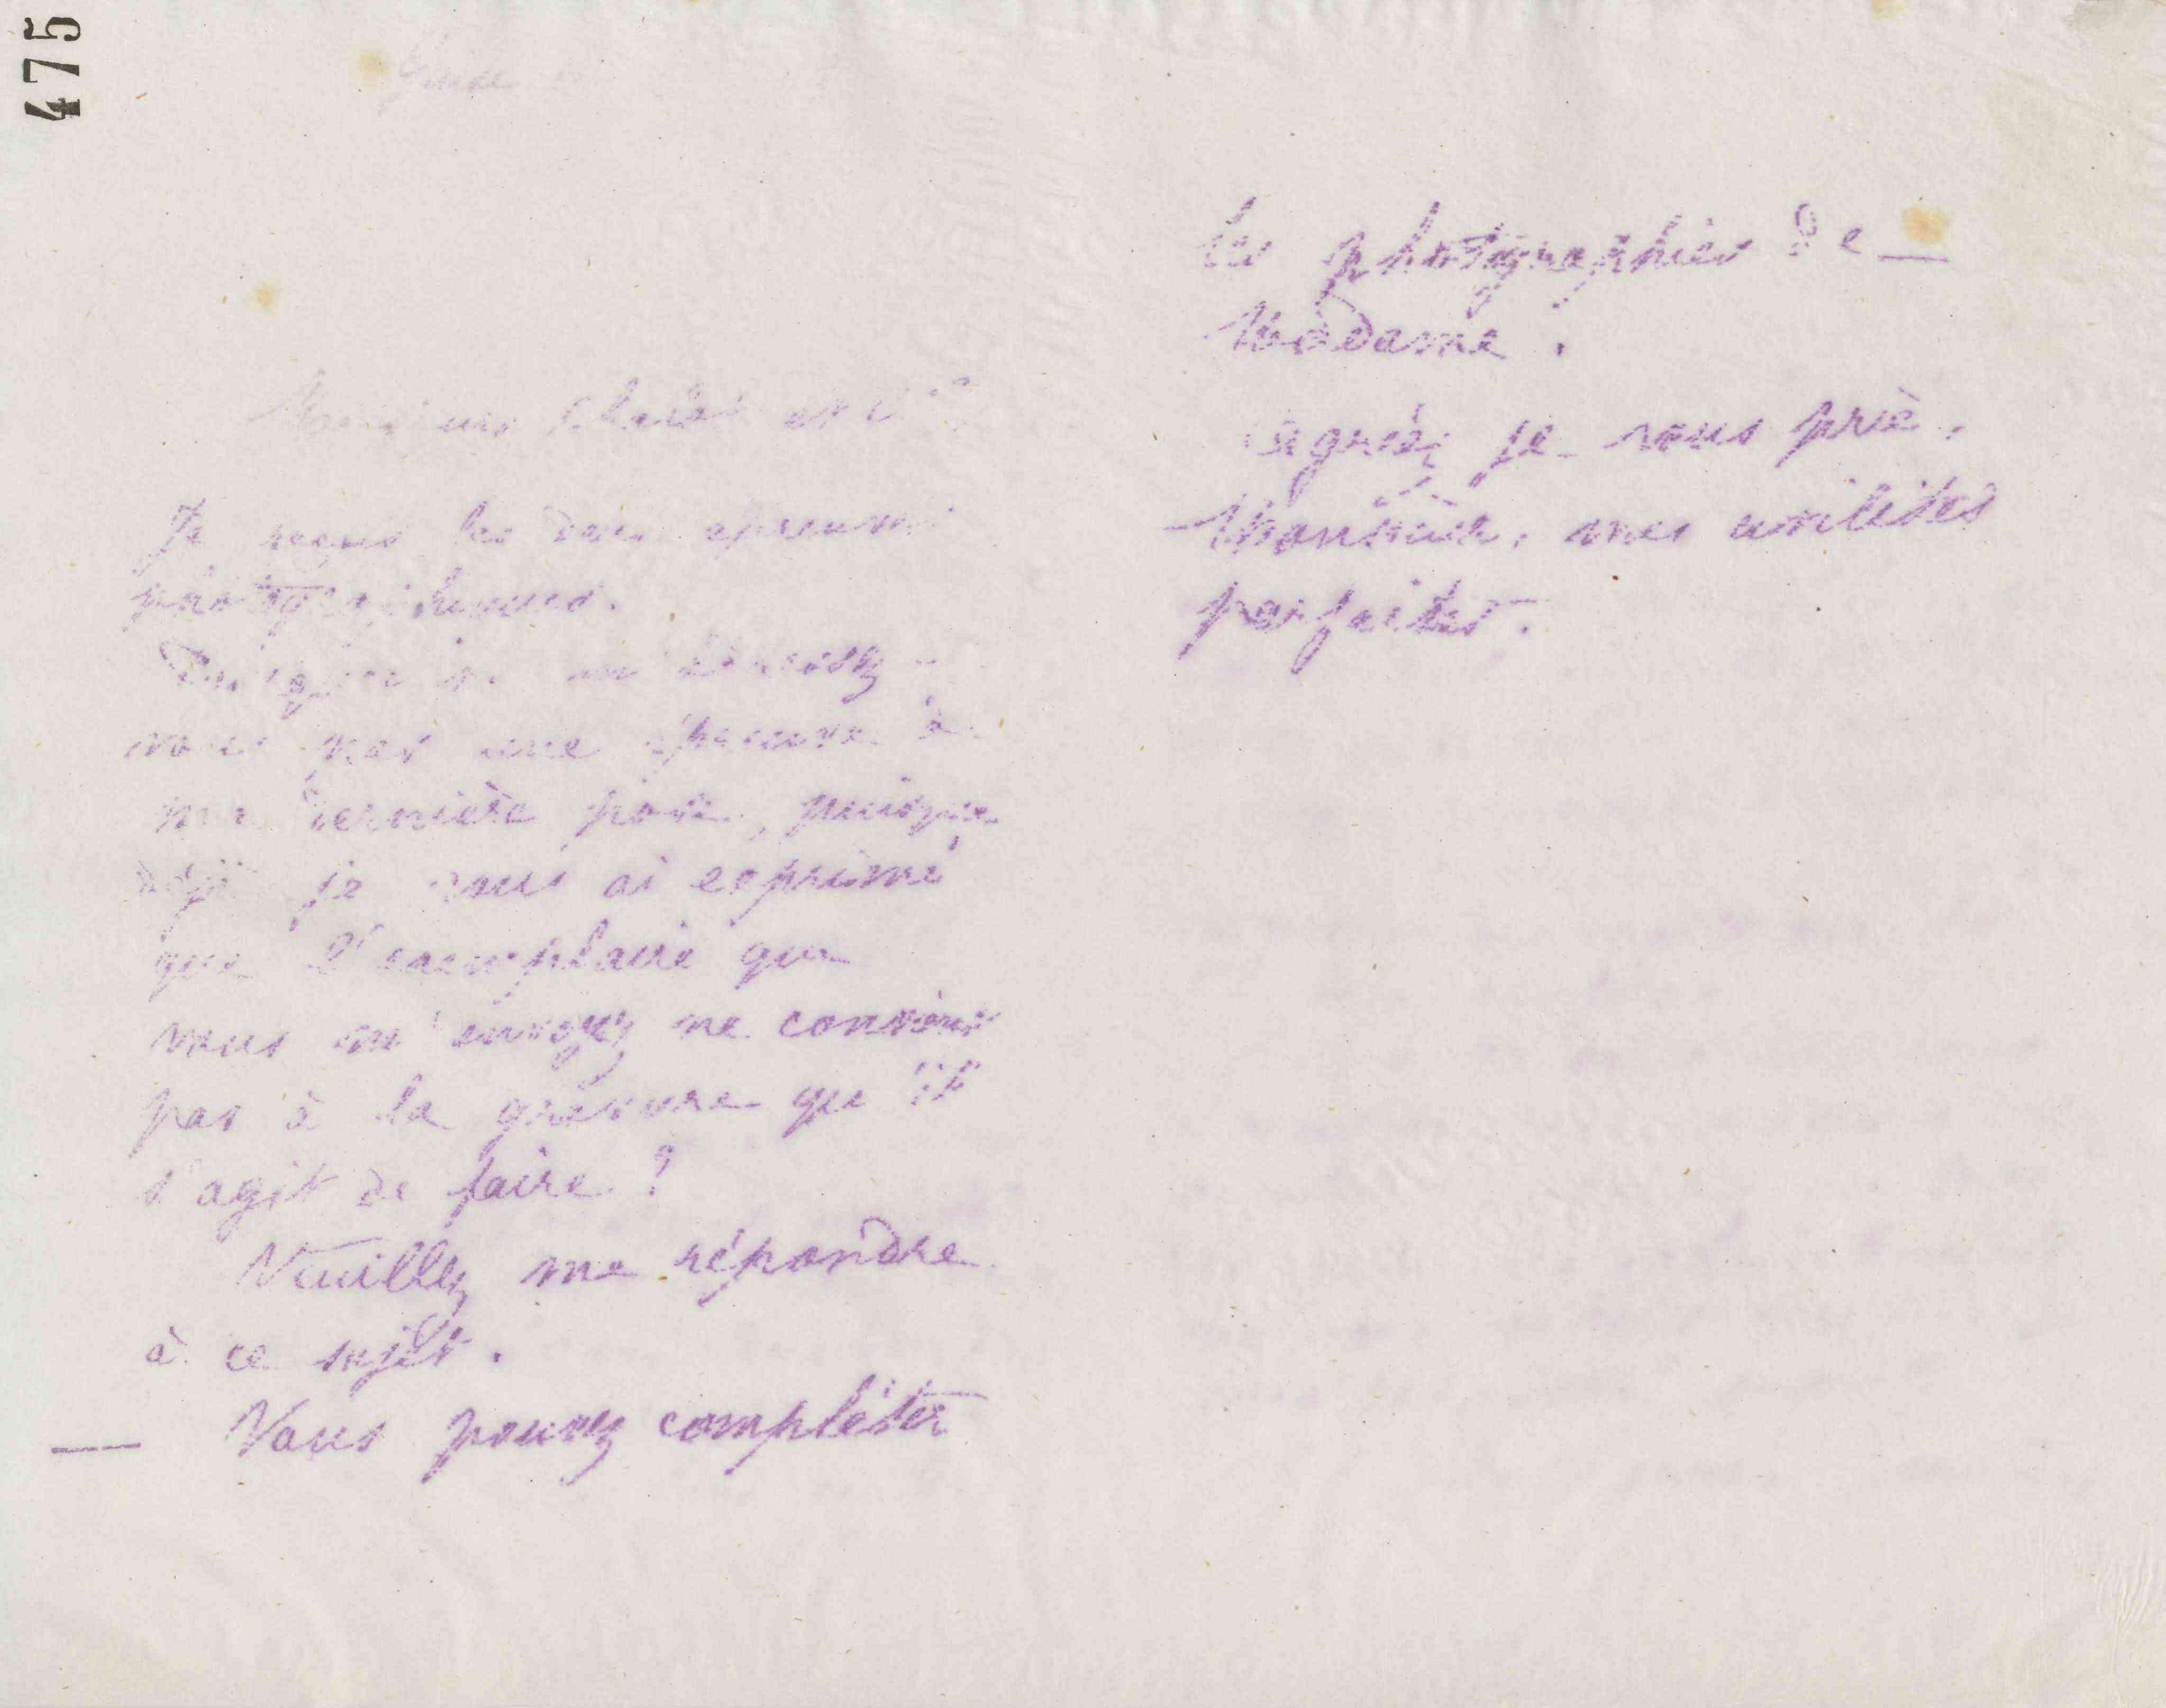 475
Guise
Messieurs et Cie
Je reçus les deux epreuves
photographiques.
ne
vous pas une épreuve à
ma dernière pose, puisque
déjà je vous ai exprimé
que l'exemplaire que
vous m'envoyez ne convient
pas à la gravure qu'il
s'agit de faire ?
Veuillez me répondre
à ce sujet.
— Vous pouvez compléter
les photographies de —
Madame.
Agréez je vous prie,
Monsieur, mes civilités
parfaites.